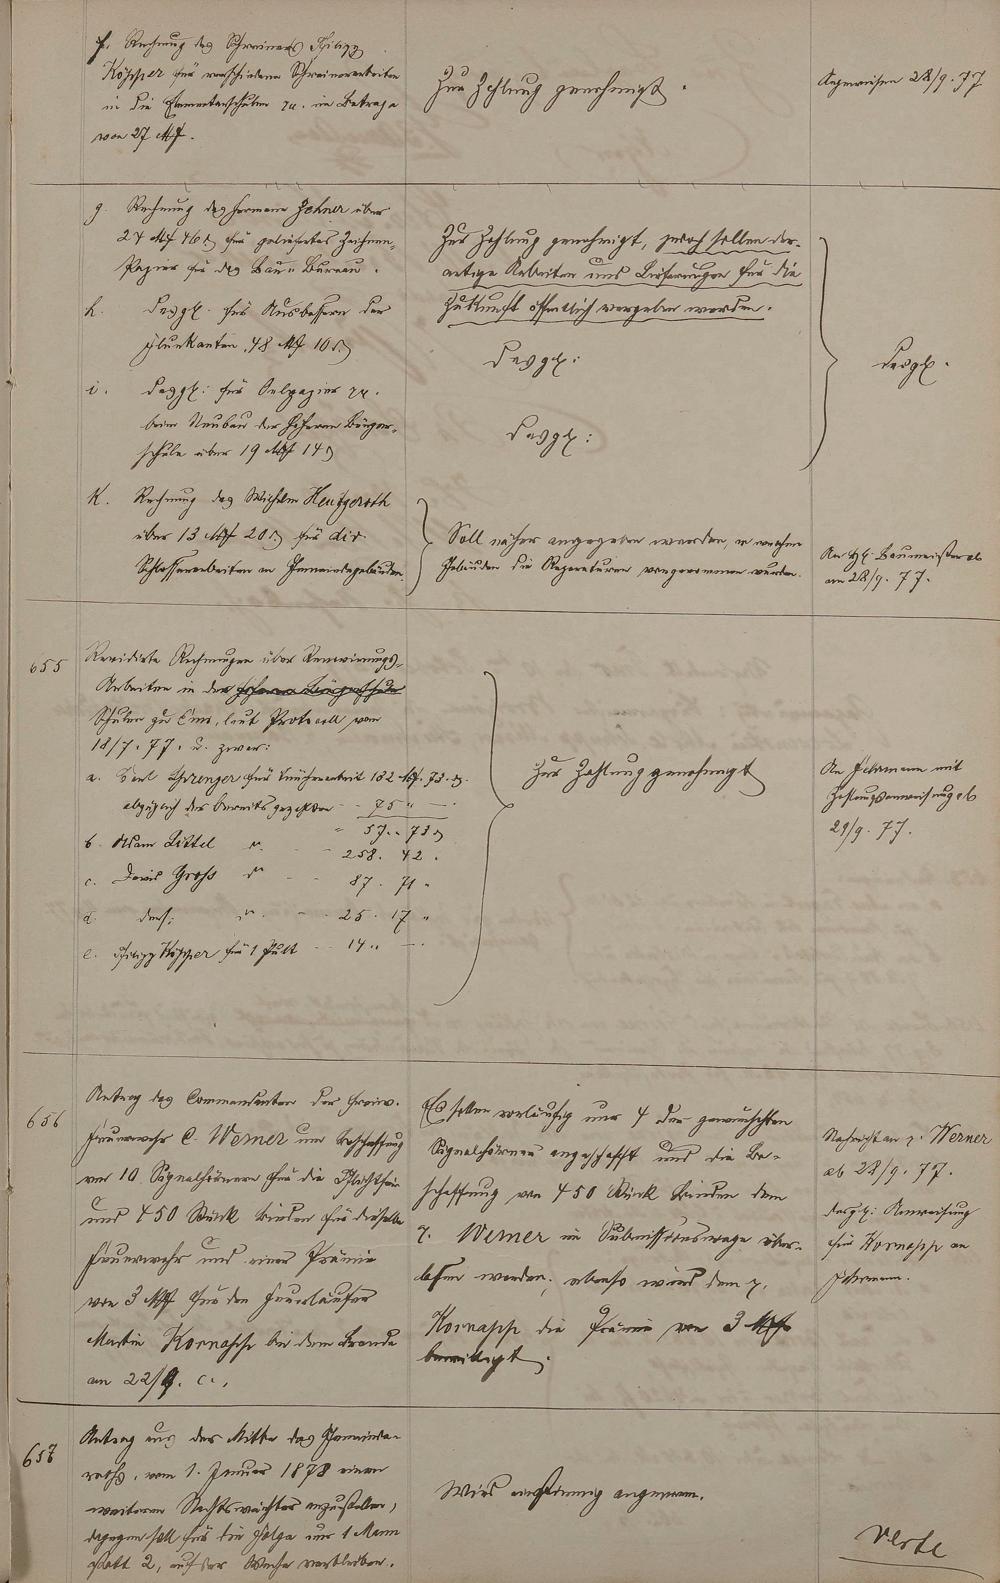 f. Rechnung des Schreiners Philipp
Köpper für verschiedene Schreinerarbeiten
in die Elementarschulen pp. im Betrage
von 27 Mk.
Zur Zahlung genehmigt.
Angewiesen 28/9. 77
g. Rechnung des Hermann Zehner über
24 Mk 46 d für geliefertes Zeichen-
Papier für das Bau-Bureau.
Zur Zahlung genehmigt, jedoch sollen der-
artige Arbeiten und Lieferungen für die
Zukunft öffentlich vergeben werden.
h. Desgl. für Ausbessern der
48 Mk 10 d
Desgl:
Desgl.
i. Desgl: für Oelpapier pp.
beim Neubau der höheren Bürger-
schule über 19 Mk 14 d
Desgl:
K. Rechnung des Wilhelm Heutzeroth
über 13 Mk 20 d für div.
Schlosserarbeiten an Gemeindegebäuden.
Soll näher angegeben werden, an welchen
Gebäuden die Reparaturen vorgenommen wurden.
An H. Baumeister ab
am 28/9. 77.
655
Revidirte Rechnungen über Renovirungs-
Arbeiten in der höheren Bürgerschule
Schulen zu Ems, laut Protocoll vom
18/7. 77. u. zwar:
a. Carl Sprenger für Tüncherarbeit 132 Mk. 73. d.
abzüglich der bereits gezahlten - - 75 " —
" 57. " 73 d
b. Adam Littel do. - - 258. 42.
c. David Groß do - - 87. 71 "
d. ders: do. - - 25. 17 "
e. Philipp Köpper für 1 Pult - - 14 " —.
Zur Zahlung genehmigt
An Jehrmann mit
Zahlungsanweisung ab
29/9. 77.
656
Antrag des Commandanten der freiw.
Feuerwehr C. Werner um Beschaffung
von 10 Signalhörnern für die Pflichtfeu-
und 450 Stück Binden für dieselbe
Feuerwehr und einer Prämie
von 3 Mk für den Feuerläufer
Martin Kornapp bei dem Brande
am 22/9. c.,
Es sollen vorläufig nur 4 der gewünschten
Signalhörner angeschafft und die Be-
schaffung von 450 Stück Binden dem
p. Werner im Submissionswege über-
lassen werden; ebenso wird dem p.
Kornapp die Prämie von 3 Mk
bewilligt.
Nachricht an p. Werner
ab 28/9. 77.
desgl: Anweisung
für Kornapp an
Jehrmann.
657
Antrag aus der Mitte des Gemeinde-
raths, vom 1. Januar 1878 einen
weiteren Nachtwächter anzustellen,
dagegen soll für die Folge nur 1 Mann
statt 2, auf der Wache verbleiben.
Wird einstimmig angenommen.
Verte